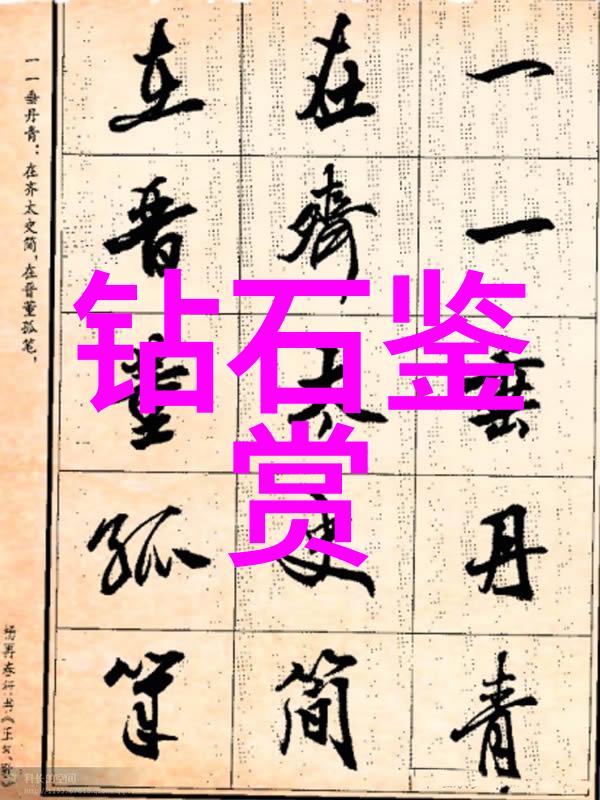 钻石鉴
赏
一一垂丹青
在齊太史简
在晋董孤笔
一一垂丹青：在齐太史简，在晋董孤笔，
杨再春行书《正气歌》
科长的空间